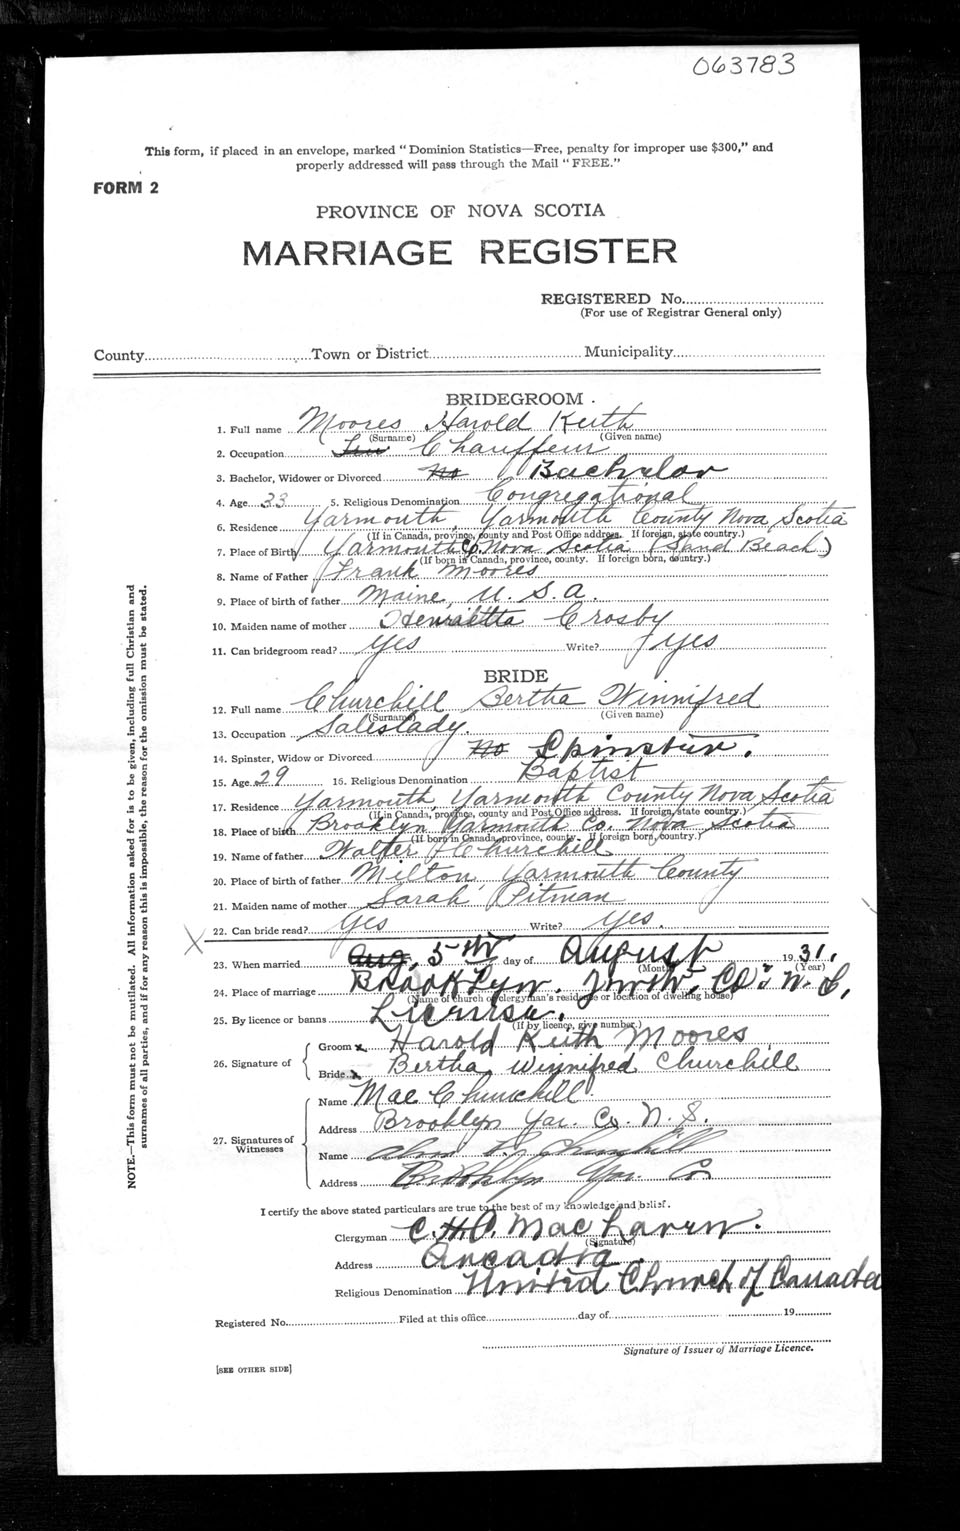 063783
This form, if placed in an envelope, marked "Dominion Statistics—Free, penalty for improper use $300," and
properly addressed will pass through the Mail "FREE."
FORM 2
PROVINCE OF NOVA SCOTIA
MARRIAGE REGISTER
REGISTERED No.
(For use of Registrar General only)
County Town or District Municipality
BRIDEGROOM
1. Full name Moores Harold Keith
(Surname) (Given name)
2. Occupation Chauffeur
3. Bachelor, Widower or Divorced No Bachelor
4. Age 33 5. Religious Denomination Congregational
6. Residence Yarmouth, Yarmouth County Nova Scotia
(If in Canada, province, county and Post Office address. If foreign, state country.)
7. Place of Birth Yarmouth Co. Nova Scotia (Sand Beach)
(If born in Canada, province, county. If foreign born, country.)
8. Name of Father Frank Moores
9. Place of birth of father Maine, U. S. A.
10. Maiden name of mother Henrietta Crosby
11. Can bridegroom read? Yes Write? Yes
BRIDE
12. Full name Churchill Bertha Winnifred
(Surname) (Given name)
13. Occupation Saleslady.
14. Spinster, Widow or Divorced No Spinster.
15. Age 29 16. Religious Denomination Baptist
17. Residence Yarmouth, Yarmouth County Nova Scotia
(If in Canada, province, county and Post Office address. If foreign, state country.)
18. Place of birth Brooklyn Yarmouth Co. Nova Scotia
(If born in Canada, province, county. If foreign born, country.)
19. Name of father Walter Churchill
20. Place of birth of father Milton, Yarmouth County
21. Maiden name of mother Sarah Pitman
22. Can bride read? Yes Write? Yes.
X
23. When married Aug. 5th day of August 1931.
(Month) (Year)
24. Place of marriage Brooklyn. Co. N. S.
(Name of church or clergyman's residence or location of dwelling house)
25. By licence or banns License.
(If by licence, give number.)
26. Signature of
Groom x Harold Keith Moores
Bride x Bertha Winnifred Churchill
27. Signatures of
Witnesses
Name Mae Churchill
Address Brooklyn Yar. Co. N. S.
Name Churchill
Address Brooklyn Yar. Co
I certify the above stated particulars are true to the best of my knowledge and belief.
Clergyman C. H. C. MacLaren.
(Signature)
Address Arcadia.
Religious Denomination United Church of Canada
Registered No. Filed at this office day of 19
Signature of Issuer of Marriage Licence.
[SEE OTHER SIDE]
NOTE.—This form must not be mutilated. All Information asked for is to be given, including full Christian and
surnames of all parties, and if for any reason this is impossible, the reason for the omission must be stated.